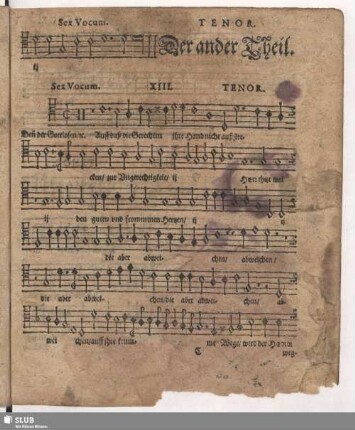 Sex Vocum. TENOR.
Der ander Theil.
ij
Sex Vocum. XIII. TENOR.
der Gottlosen Auff daß die Gerechten ihre Hand nicht
cken/ zur Ungerechtigkeit/ ij
ij den guten und frommmen Hertzen/ ij
die aber abwei- chen/ abweichen/
die aber abwei- chen/die aber abwei- chen/ ab-
wei chen/auff ihre krum- me Wege/ wird der Herr
C weg-
SLUB
Wir führen Wissen.